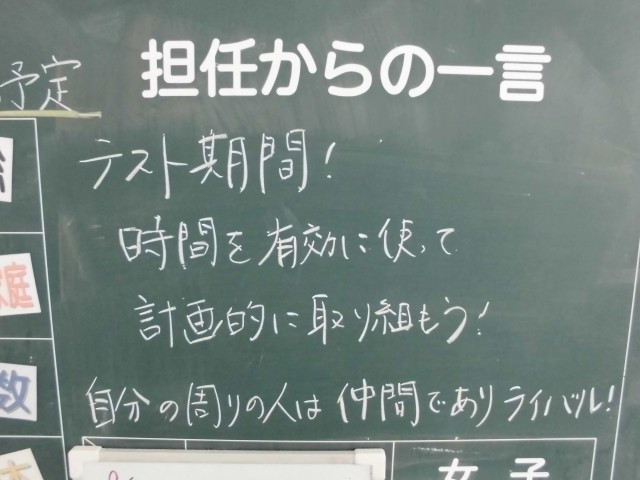 予定
担任からの一言
テスト期間!
時間を有効に使って
計画的に取り組もう!
自分の周りの人は仲間でありライバル!
家庭
数
女子